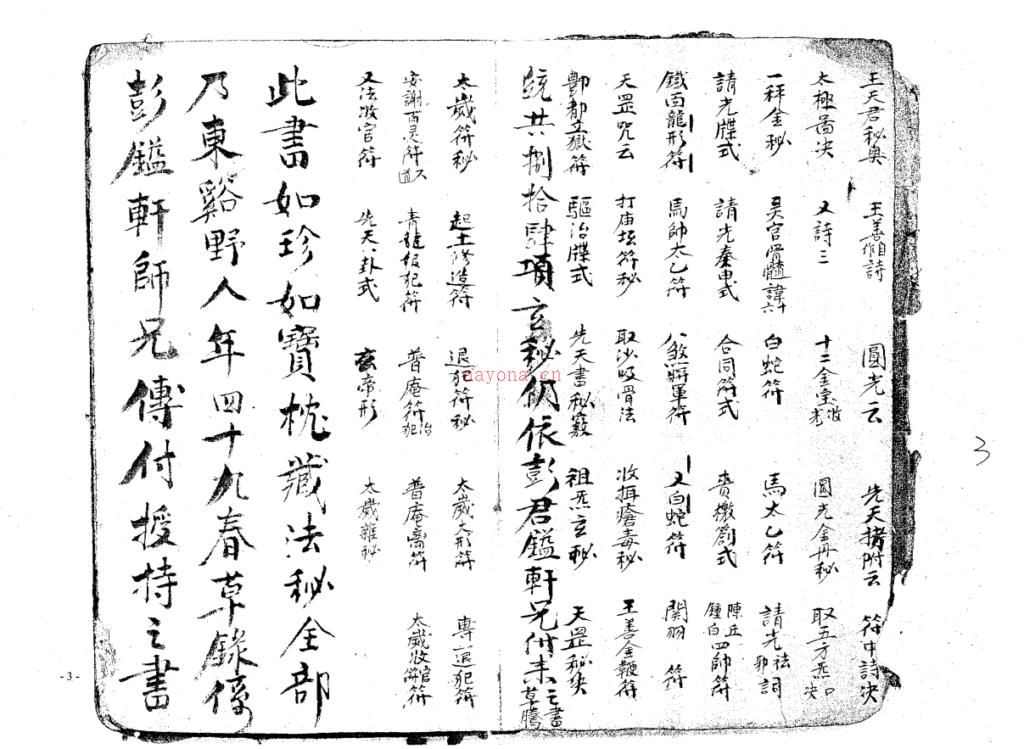 王天君秘奥 王善椎詩 圓光云 先天撥附云 符中詩決
太極啚決 又詩三 十二金堂收煞 圆光金丹秘 取五方炁口決
一秤金秘 吴官骨髓諱六十 白蛇符 馬太乙符 請光祛邪詞
請光牒式 請光奏申式 合同符式 賫檄劄式 陳丘鍾白四帥符
鐵面龍形符 馬帥太乙符 八煞將軍符 又白蛇符 関羽符
天罡咒云 打庙坛符秘 取沙吸骨法 收捛瘡毒秘 王善金鞭符
酆都立獄符 驅治牒式 先天書秘竅 祖炁玄秘 天罡秘决
統共捌拾肆項玄秘仍依彭君鎰軒兄付来之書草騰
太歲符秘 起土修造符 退犯符秘 太歲大形符 專一退犯符
安謝百灵符又一道 青龍报犯符 普庵符治犯 普庵嵩符 太歲收官符
又法收官符 先天八卦式 玄帝形 太歲雜秘
此書如珍如寶枕藏法秘全部
乃東谿野人年四十九春草錄係
彭鎰軒師兄傳付授持之書
nayona.cn
3
- 3 -